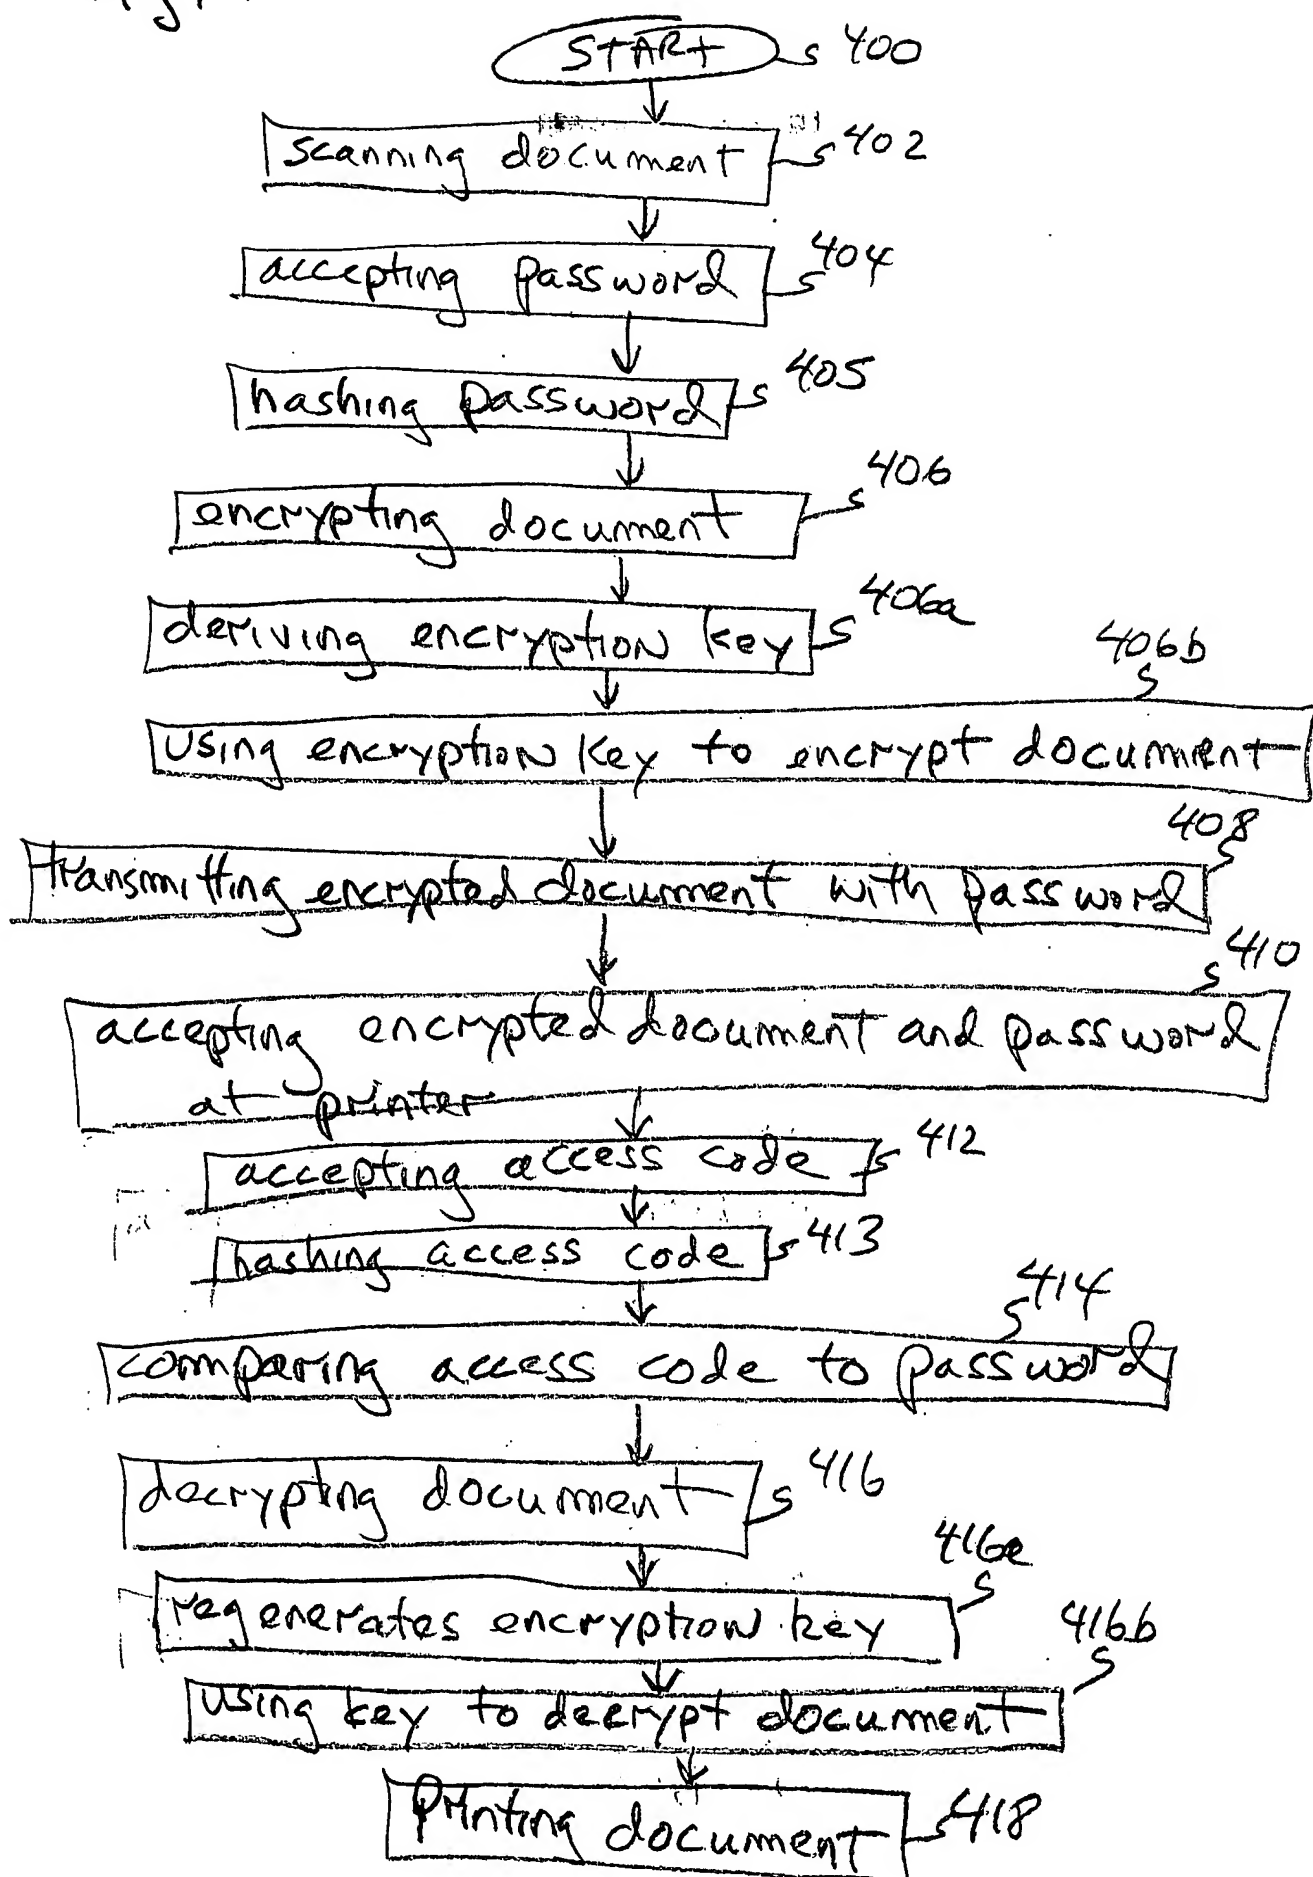 START 400
scanning document 402
accepting password 404
hashing password 405
encrypting document 406
deriving encryption key 406a
406b
using encryption key to encrypt document
408
transmitting encrypted document with password
410
accepting encrypted document and password
at printer
accepting access code 412
hashing access code 413
414
comparing access code to password
decrypting document 416
416a
regenerates encryption key
416b
using key to decrypt document
printing document 418